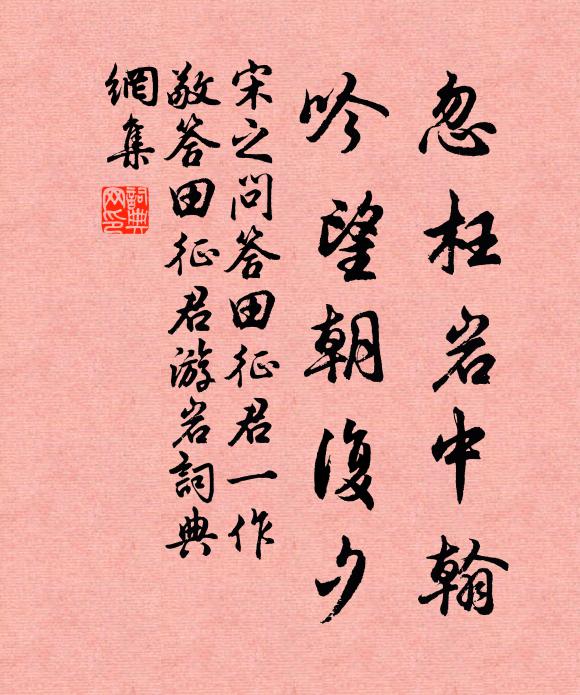 忽枉岩中翰
吟望朝復夕
宋之問答田征君一作
敬答田征君游岩詞典
網集
詞典網印